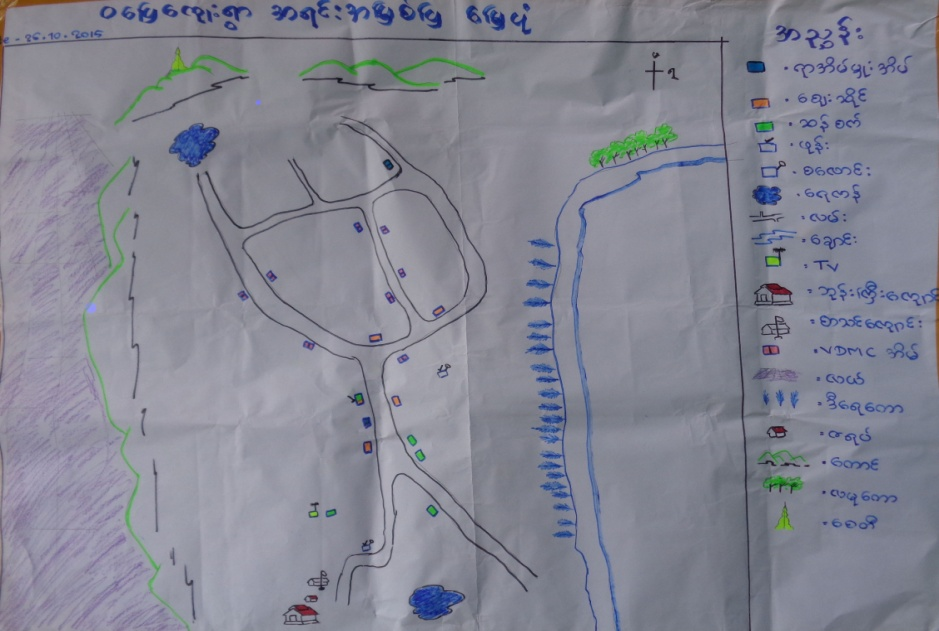 ဝမြေကျေးရွာ အရင်းအမြစ်ပြ မြေပုံ
26.10.2015
အညွှန်း
၇
ရွာအိမ်မှူးအိမ်
ဈေးဆိုင်
ဆန်စက်
ဖုန်း
စလောင်း
ရေကန်
လမ်း
ချောင်း
TV
ဘုန်းကြီးကျောင်း
စာသင်ကျောင်း
VDMC အိမ်
လယ်
ဒီရေတော
ဇရပ်
တောင်
လမုတော
စေတီ